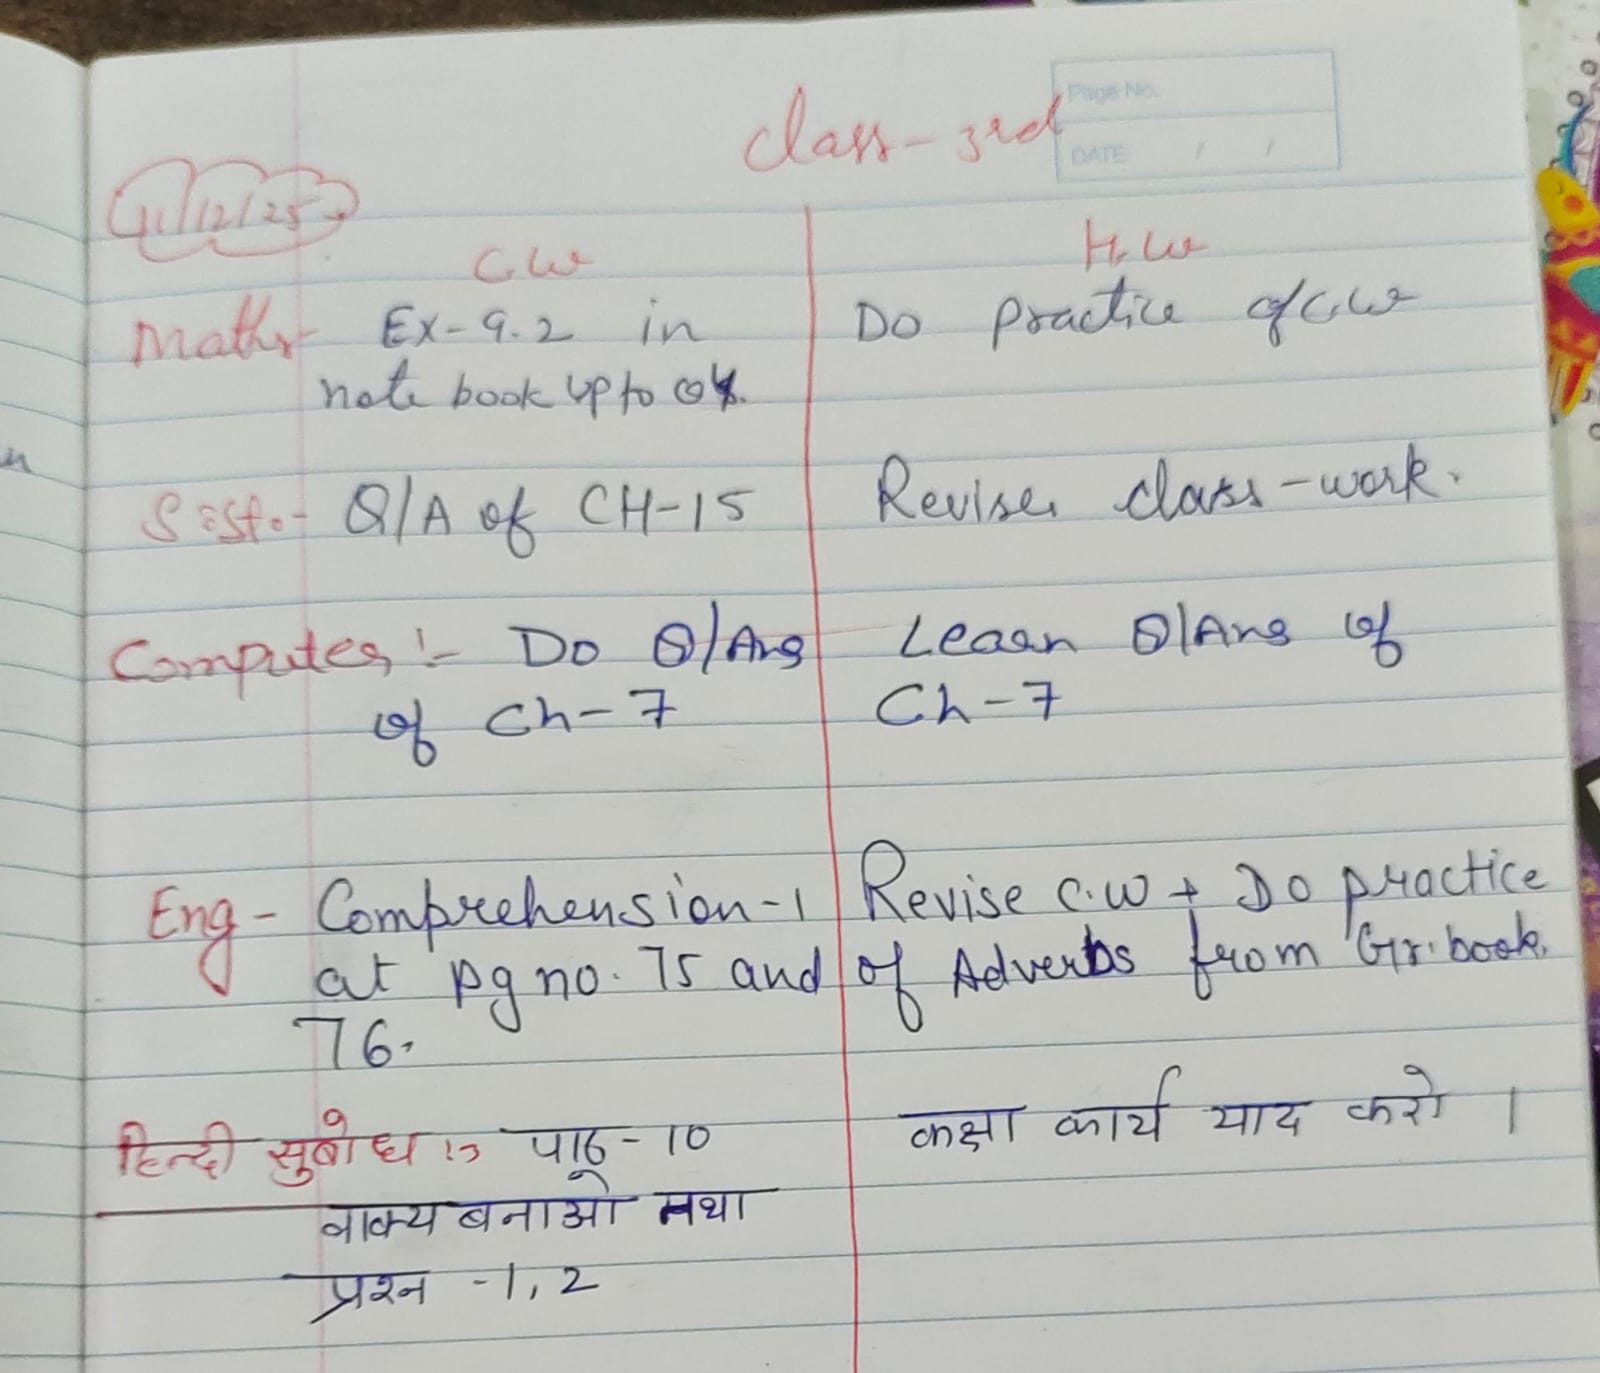 class - 3rd
Page No.
DATE / /
11/12/25
C.W
H.W
Maths - Ex - 9.2 in
note book up to Q4.
Do practice of C.W
S.St. :- Q/A of CH-15
Revise class-work.
Computer :- Do Q/Ans
of Ch-7
Learn Q/Ans of
Ch-7
Eng - Comprehension-1
at pg no. 75 and
76.
Revise C.W + Do practice
of Adverbs from Gr. book.
हिन्दी सुबोध :- पाठ - 10
वाक्य बनाओ तथा
प्रश्न - 1, 2
कक्षा कार्य याद करो ।